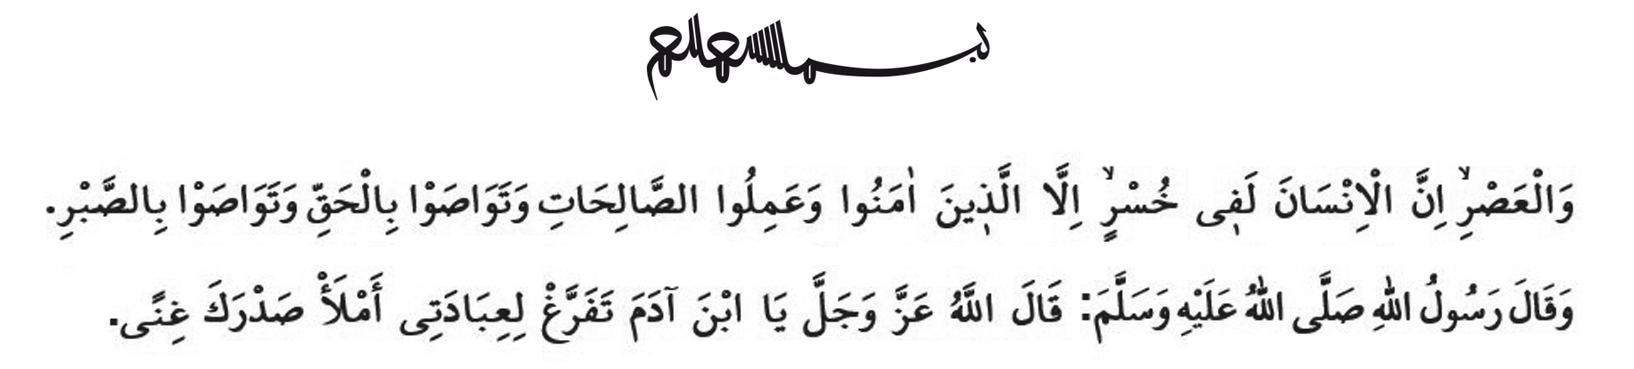 بسم الله الرحمن الرحيم
وَالْعَصْرِۙ اِنَّ الْاِنْسَانَ لَفٖى خُسْرٍۙ اِلَّا الَّذٖينَ اٰمَنُوا وَعَمِلُوا الصَّالِحَاتِ وَتَوَاصَوْا بِالْحَقِّ وَتَوَاصَوْا بِالصَّبْرِ.
وَقَالَ رَسُولُ اللهِ صَلَّى اللهُ عَلَيْهِ وَسَلَّمَ: قَالَ اللَّهُ عَزَّ وَجَلَّ يَا ابْنَ آدَمَ تَفَرَّغْ لِعِبَادَتِى أَمْلَأْ صَدْرَكَ غِنًى.